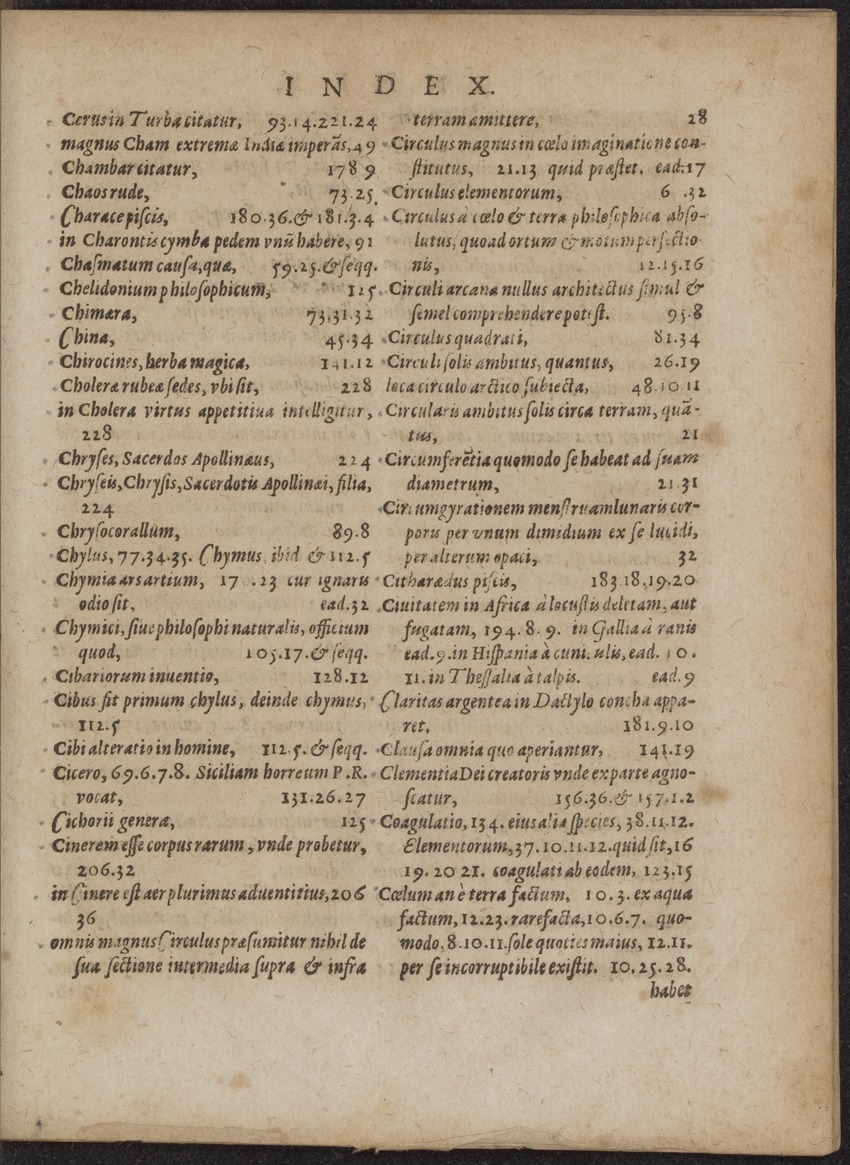 INDEX.
Cerus in Turba citatur, 93.14.221.24
magnus Cham extremæ Indiæ imperās, 49
Chambar citatur, 178 9
Chaos rude, 73.25.
Charace piſcis, 180.36.& 181.3.4
in Charontis cymba pedem vnū habere, 91
Chaſmatum cauſa, quæ, 59.25.& ſeqq.
Chelidonium philoſophicum, 125
Chimæra, 73.31.32
China, 45.34
Chirocines, herba magica, 141.12
Choleræ rubeæ ſedes, vbi ſit, 228
in Cholera virtus appetitiua intelligitur,
228
Chryſes, Sacerdos Apollinæus, 224
Chryſeis, Chryſis, Sacerdotis Apollinæi, filia,
224
Chryſocorallum, 89.8
Chylus, 77.34.35. Chymus ibid & 112.5
Chymia ars artium, 17 .23 cur ignaris
odio ſit, ead.32
Chymici, ſiue philoſophi naturalis, officium
quod, 105.17.& ſeqq.
Cibariorum inuentio, 128.12
Cibus fit primum chylus, deinde chymus,
112.5
Cibi alteratio in homine, 112.5. & ſeqq.
Cicero, 69.6.7.8. Siciliam horreum P.R.
vocat, 131.26.27
Cichorii genera, 125
Cinerem eſſe corpus rarum, vnde probetur,
206.32
in Cinere eſt aer plurimus aduentitius, 206
36
omnis magnus Circulus præſumitur nihil de
ſua ſectione intermedia ſupra & infra
terram amittere, 28
Circulus magnus in cœlo imaginatione con-
ſtitutus, 21.13 quid præſtet. ead.17
Circulus elementorum, 6 .32
Circulus à cœlo & terra philoſophica abſo-
lutus, quoad ortum & motum perfectio
nis, 12.15.16
Circuli arcana nullus architectus ſimul &
ſemel comprehendere poteſt. 95.8
Circulus quadrati, 81.34
Circuli ſolis ambitus, quantus, 26.19
loca circulo arctico ſubiecta, 48.10 11
Circularis ambitus ſolis circa terram, quā-
tus, 21
Circumferētia quomodo ſe habeat ad ſuam
diametrum, 21.31
Circumgyrationem menſtruam lunaris cor-
poris per vnum dimidium ex ſe lucidi,
per alterum opaci, 32
Citharædus piſcis, 183.18.19.20
Ciuitatem in Africa à locuſtis deletam, aut
fugatam, 194.8.9. in Gallia à ranis
ead.9. in Hiſpania à cuniculis, ead. 10.
11. in Theſſalia à talpis. ead.9
Claritas argentea in Dactylo concha appa-
ret, 181.9.10
Clauſa omnia quo aperiantur, 141.19
Clementia Dei creatoris vnde ex parte agno-
ſcatur, 156.36.& 157.1.2
Coagulatio, 134. eius alia ſpecies, 38.11.12.
Elementorum, 37.10.11.12. quid ſit, 16
19.20 21. coagulati ab eodem, 123.15
Cœlum an è terra factum, 10.3. ex aqua
factum, 12.23. rarefacta, 10.6.7. quo-
modo, 8.10.11. ſole quoties maius, 12.11.
per ſe incorruptibile exiſtit. 10.25.28.
habet